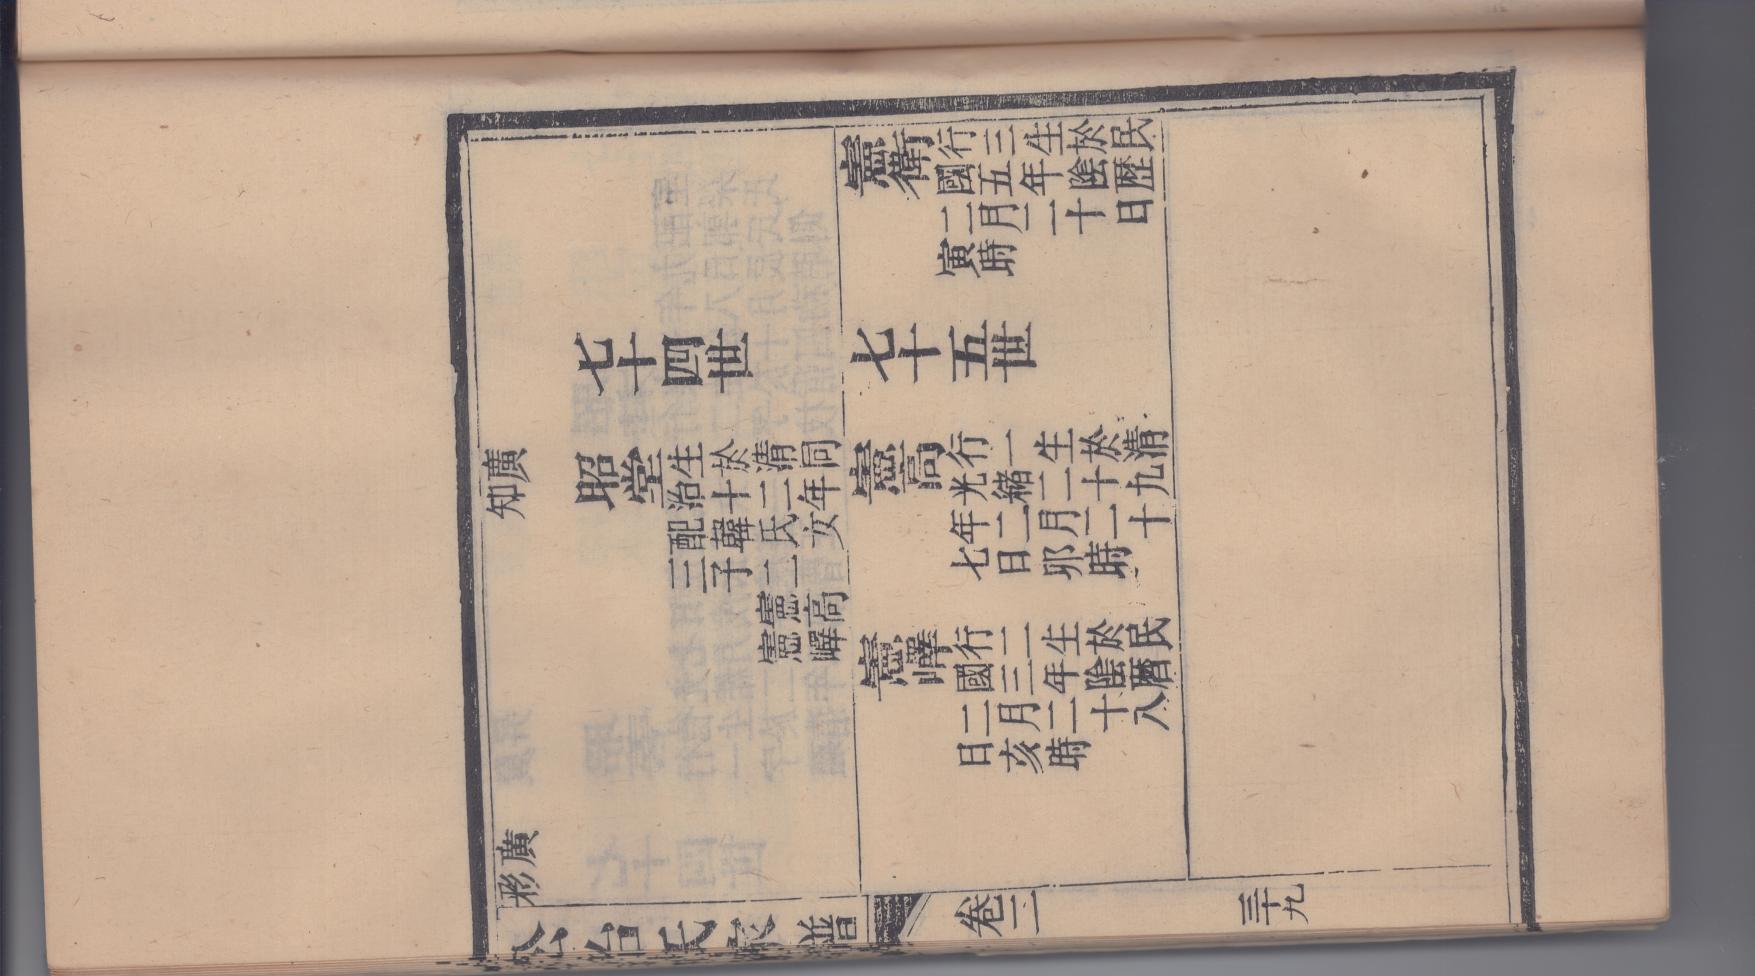 憲衛
行三生於民
國五年陰歷
二月二十日
寅時
七十四世
七十五世
廣知
昭堂
生於清同
治十二年
配韓氏女
三子二
憲高
憲嶧
憲高
行一生於清
光緒二十九
年二月二十
七日卯時
憲嶧
行二生於民
國三年陰曆
二月二十八
日亥時
廣彩
公冶氏家譜
卷二
三十九